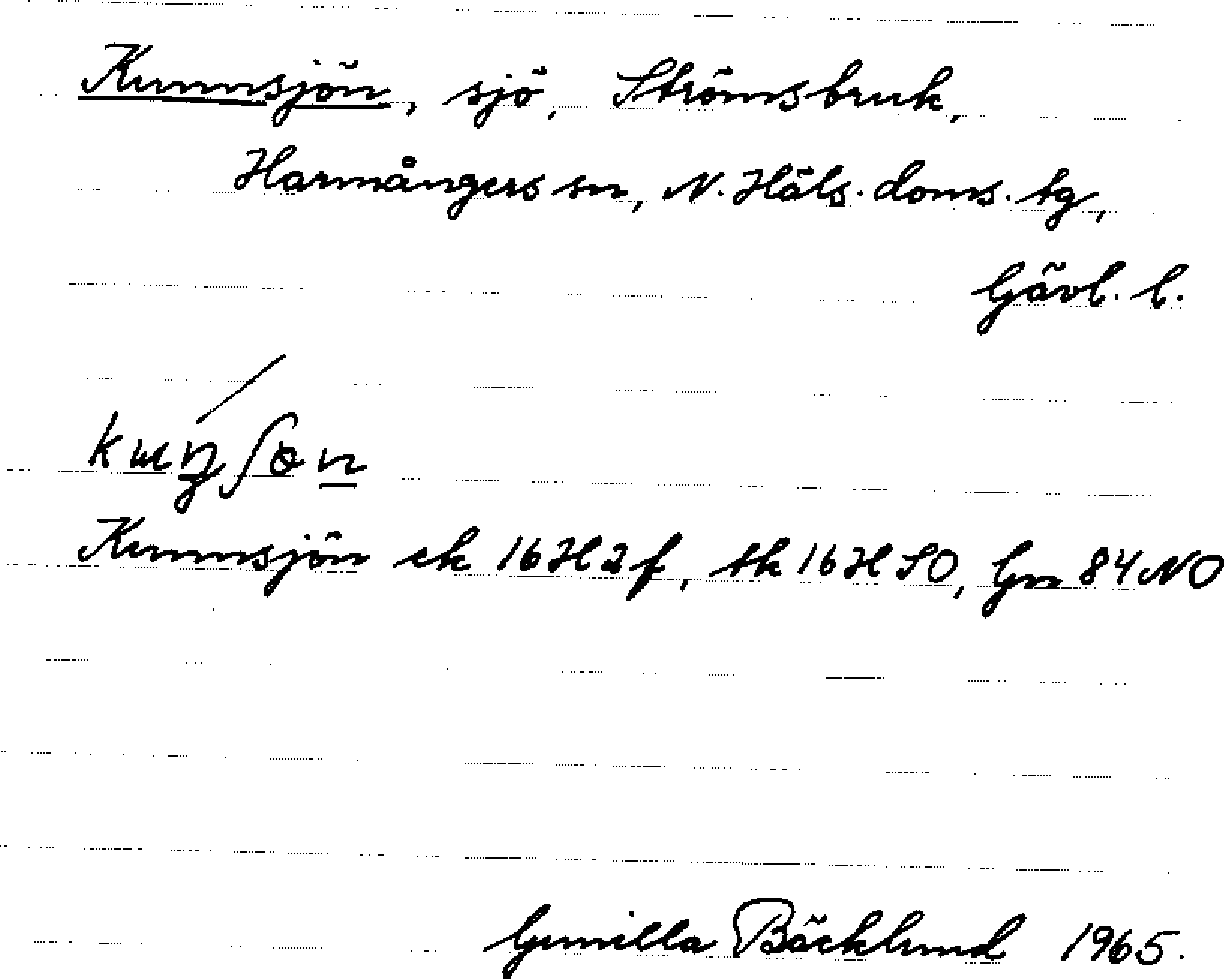 Kunnsjön, sjö, Strömsbruk,
Harmångers sn, N. Häls. doms. tg,
Gävl. l.
Kunnsjön ek 16H2f, tk 16H SO, Gn 84 NO
Gunilla Bäcklund 1965.